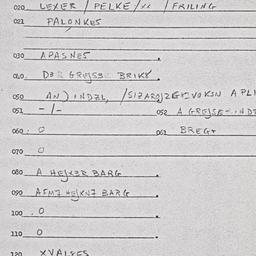 020 LEXER / PELKE /xx / FRILING
021 PALONKES
030 APASNES
040 GREJSE BRIKK
050 AN) INDZL, /SIZAROJZGEIVOKSN A PLI
051 -/- 052 A GREJSE INDZ
060 0 061 BREGŦ
070 0
080 A HEJXER BARG
090 A HEJXNZ BARG
100 0
110 0
120 XVALJES